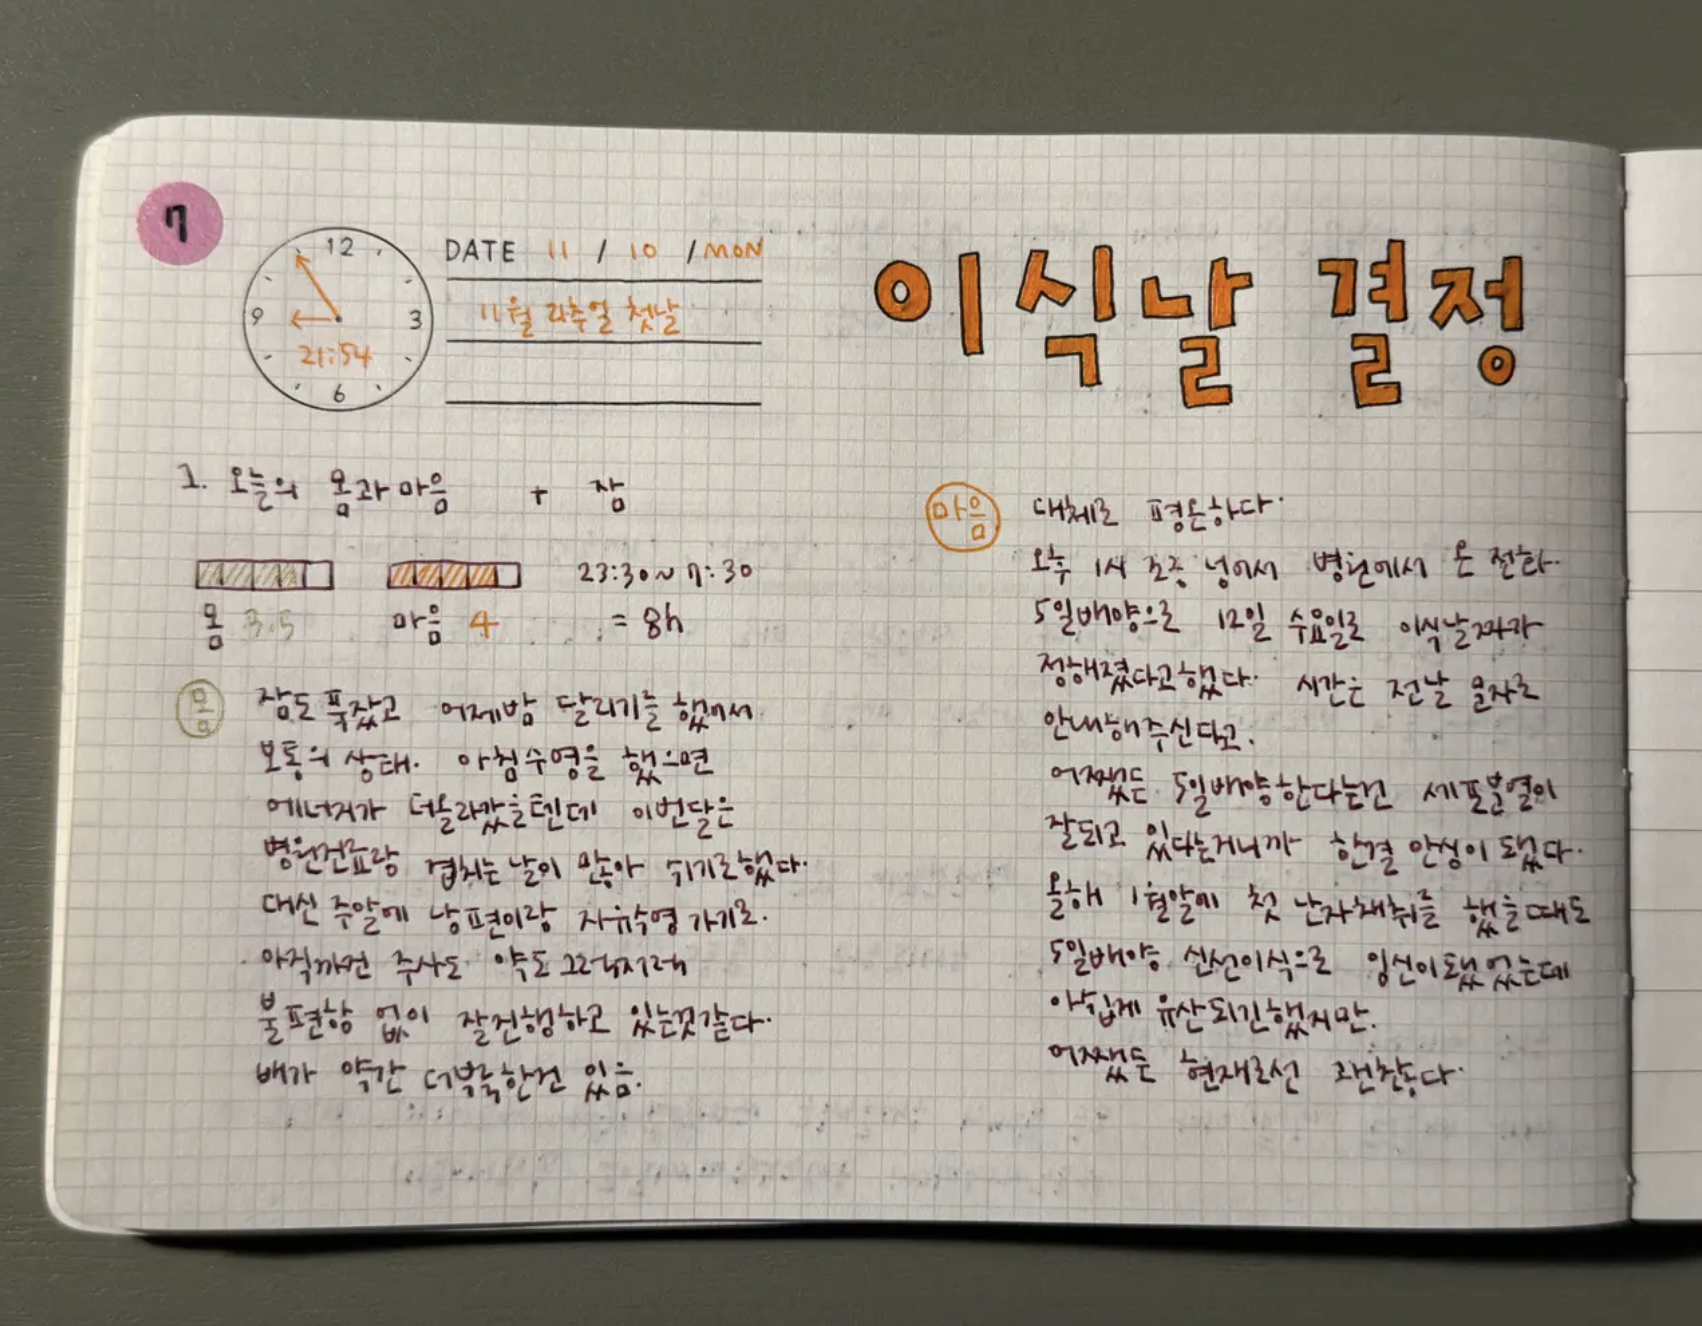 7
12
9
3
6
21:54
DATE 11 / 10 / MON
11월 2주일 첫날
이식날 결정
1. 오늘의 몸과 마음 + 잠
몸 3.5
마음 4
23:30~7:30
= 8h
몸
잠도 푹잤고 어제밤 달리기를 했어서
보통의 상태. 아침수영을 했으면
에너지가 더올라갔을텐데 이번달은
병원진료랑 겹치는 날이 많아 쉬기로했다.
대신 주말에 남편이랑 자유수영 가기로.
아직까진 주사도 약도 그럭저럭
불편함 없이 잘진행하고 있는것같다.
배가 약간 더부룩한건 있음.
마음
대체로 평온하다.
오후 1시 조금 넘어서 병원에서 온 전화.
5일배양으로 12일 수요일로 이식날짜가
정해졌다고했다. 시간은 전날 문자로
안내해주신다고.
어쨌든 5일배양한다는건 세포분열이
잘되고 있다는거니까 한결 안심이 됐다.
올해 1월말에 첫 난자채취를 했을때도
5일배양 신선이식으로 임신이됐었는데
아쉽게 유산되긴했지만.
어쨌든 현재로선 괜찮다.